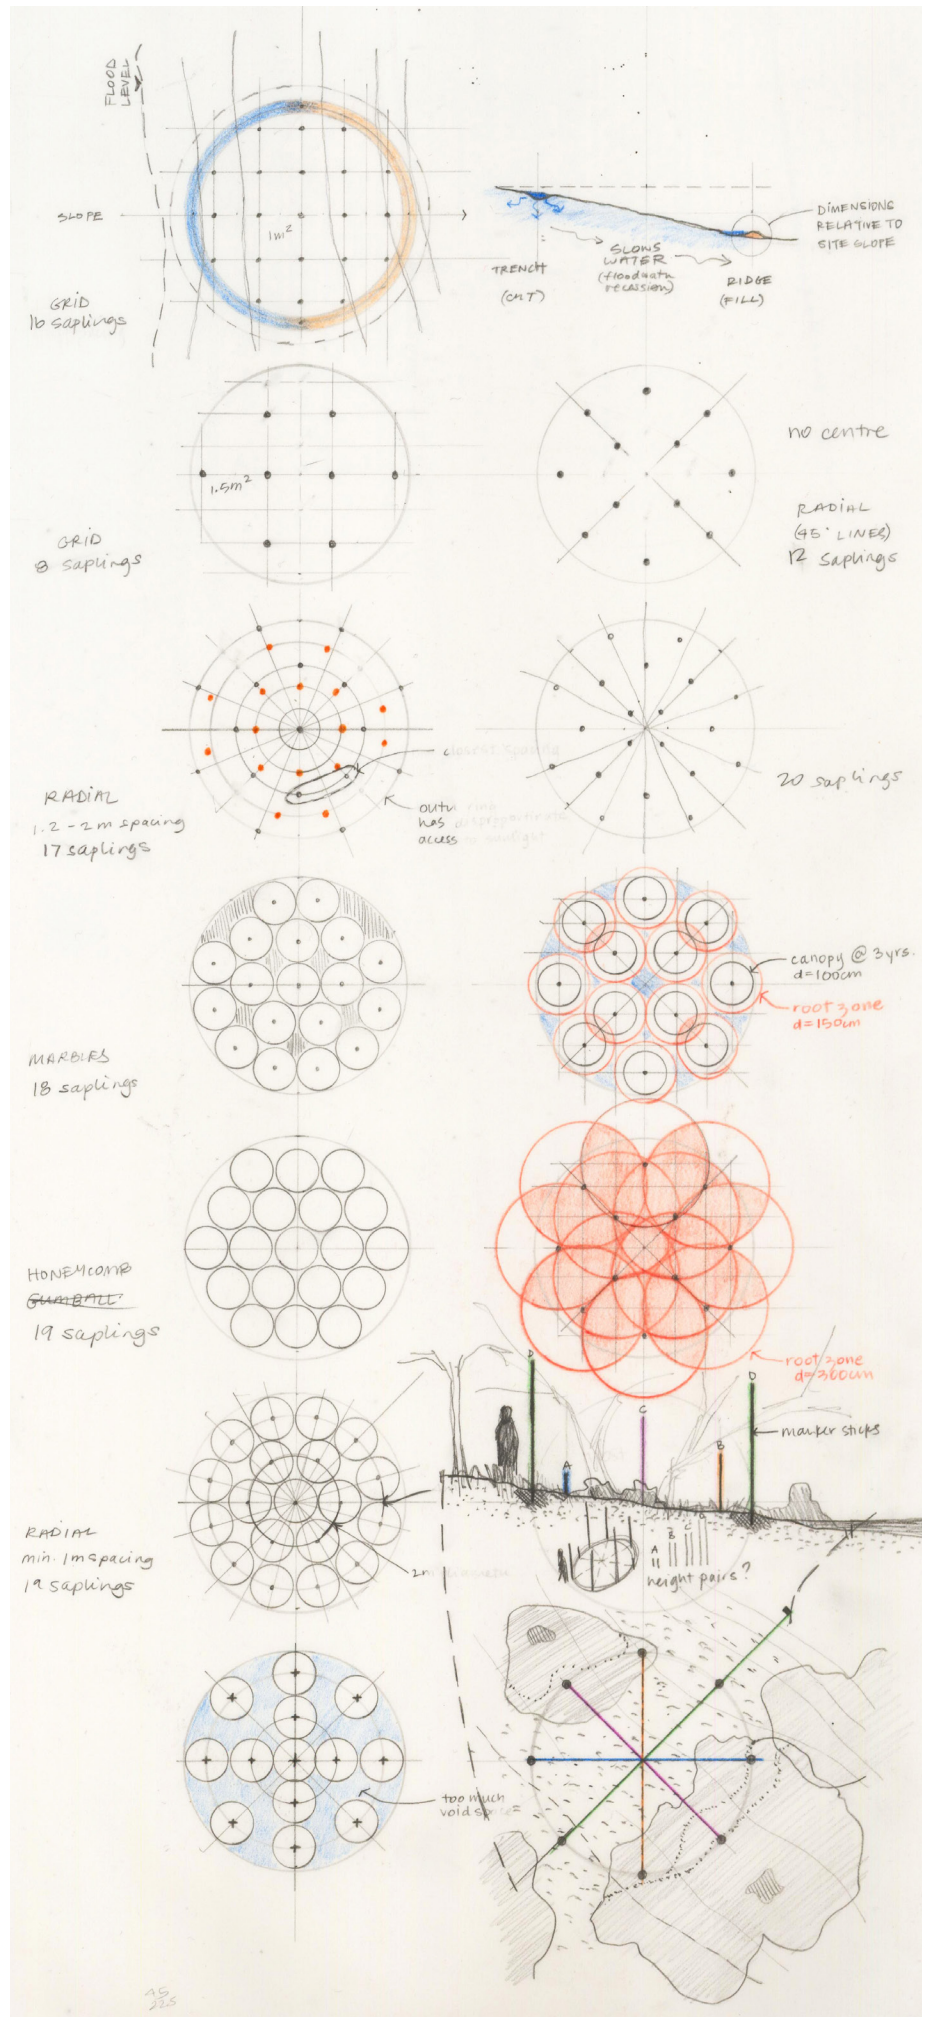 FLOOD
LEVEL
SLOPE
1m²
GRID
16 saplings
TRENCH
(CUT)
SLOWS
WATER
(floodwater
recession)
RIDGE
(FILL)
DIMENSIONS
RELATIVE TO
SITE SLOPE
1.5m²
GRID
8 saplings
no centre
RADIAL
(45° LINES)
12 saplings
closest spacing
outer ring
has disproportionate
access to sunlight
RADIAL
1.2 - 2m spacing
17 saplings
20 saplings
MARBLES
18 saplings
canopy @ 3 yrs.
d=100cm
root zone
d=150cm
HONEYCOMB
GUMBALL
19 saplings
root zone
d=300cm
D
D
C
B
A
marker sticks
A
B
C
D
height pairs?
RADIAL
min. 1m spacing
19 saplings
2m diameter
too much
void space
45
225